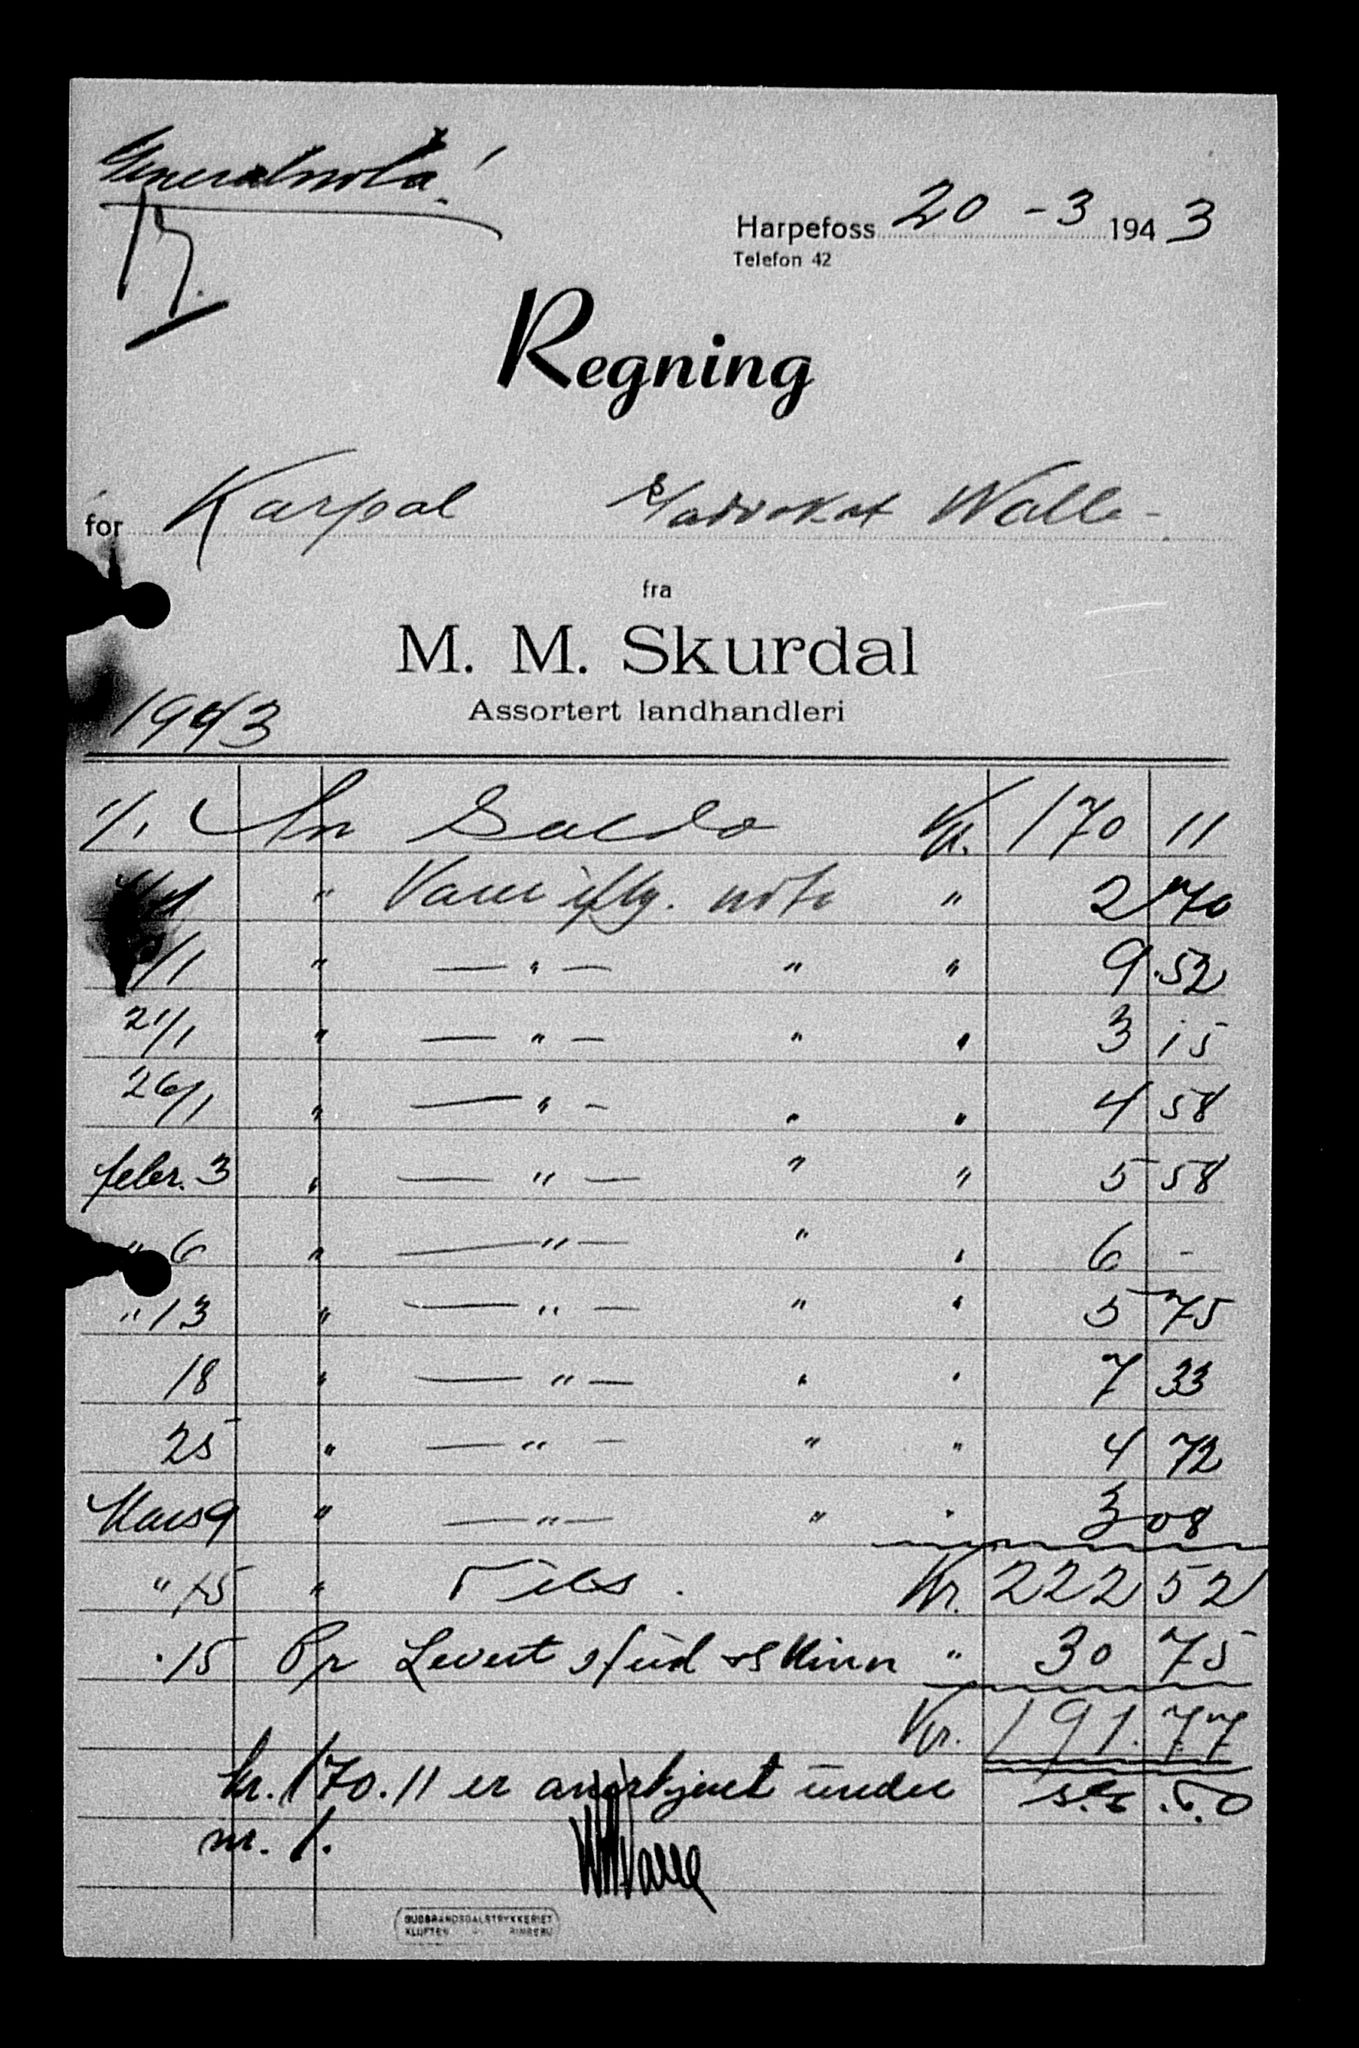 Generalnota!
17.
Harpefoss 20 - 3 1943
Telefon 42
Regning
for Karpal s/advokat Walle -
fra
M. M. Skurdal
Assortert landhandleri
1943
1/1 An Saldo Kr. 170 11
" Varer iflg. nota " 2 70
/1 " — " — " " 9.52
21/1 " — " — " " 3 15
26/1 " — " — " " 4 58
febr. 3 " — " — " " 5 58
" 6 " — " — " " 6 -
" 13 " — " — " " 5 75
18 " — " — " " 7 33
25 " — " — " " 4 72
Mars 9 " — " — " " 3 08
" 15 " Kr. 222 52
" 15 Pr Levert " 30 75
Kr. 191.77
kr. 170.11 er anerkjent under
nr. 1.
GUDBRANDSDALSTRYKKERIET
KLUFTEN - RINGEBU